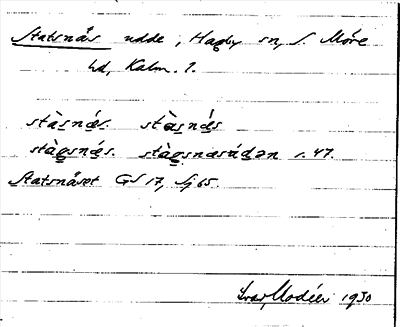 Statsnäs udde, Hagby sn, S. Möre
hd, Kalm. l.
stàsnǽs. stàsnǽs
stàgsnæs. stàgsnasúdən s. 47.
Statsnäset GS 17, Sj 65.
Ivar Modéer 1930